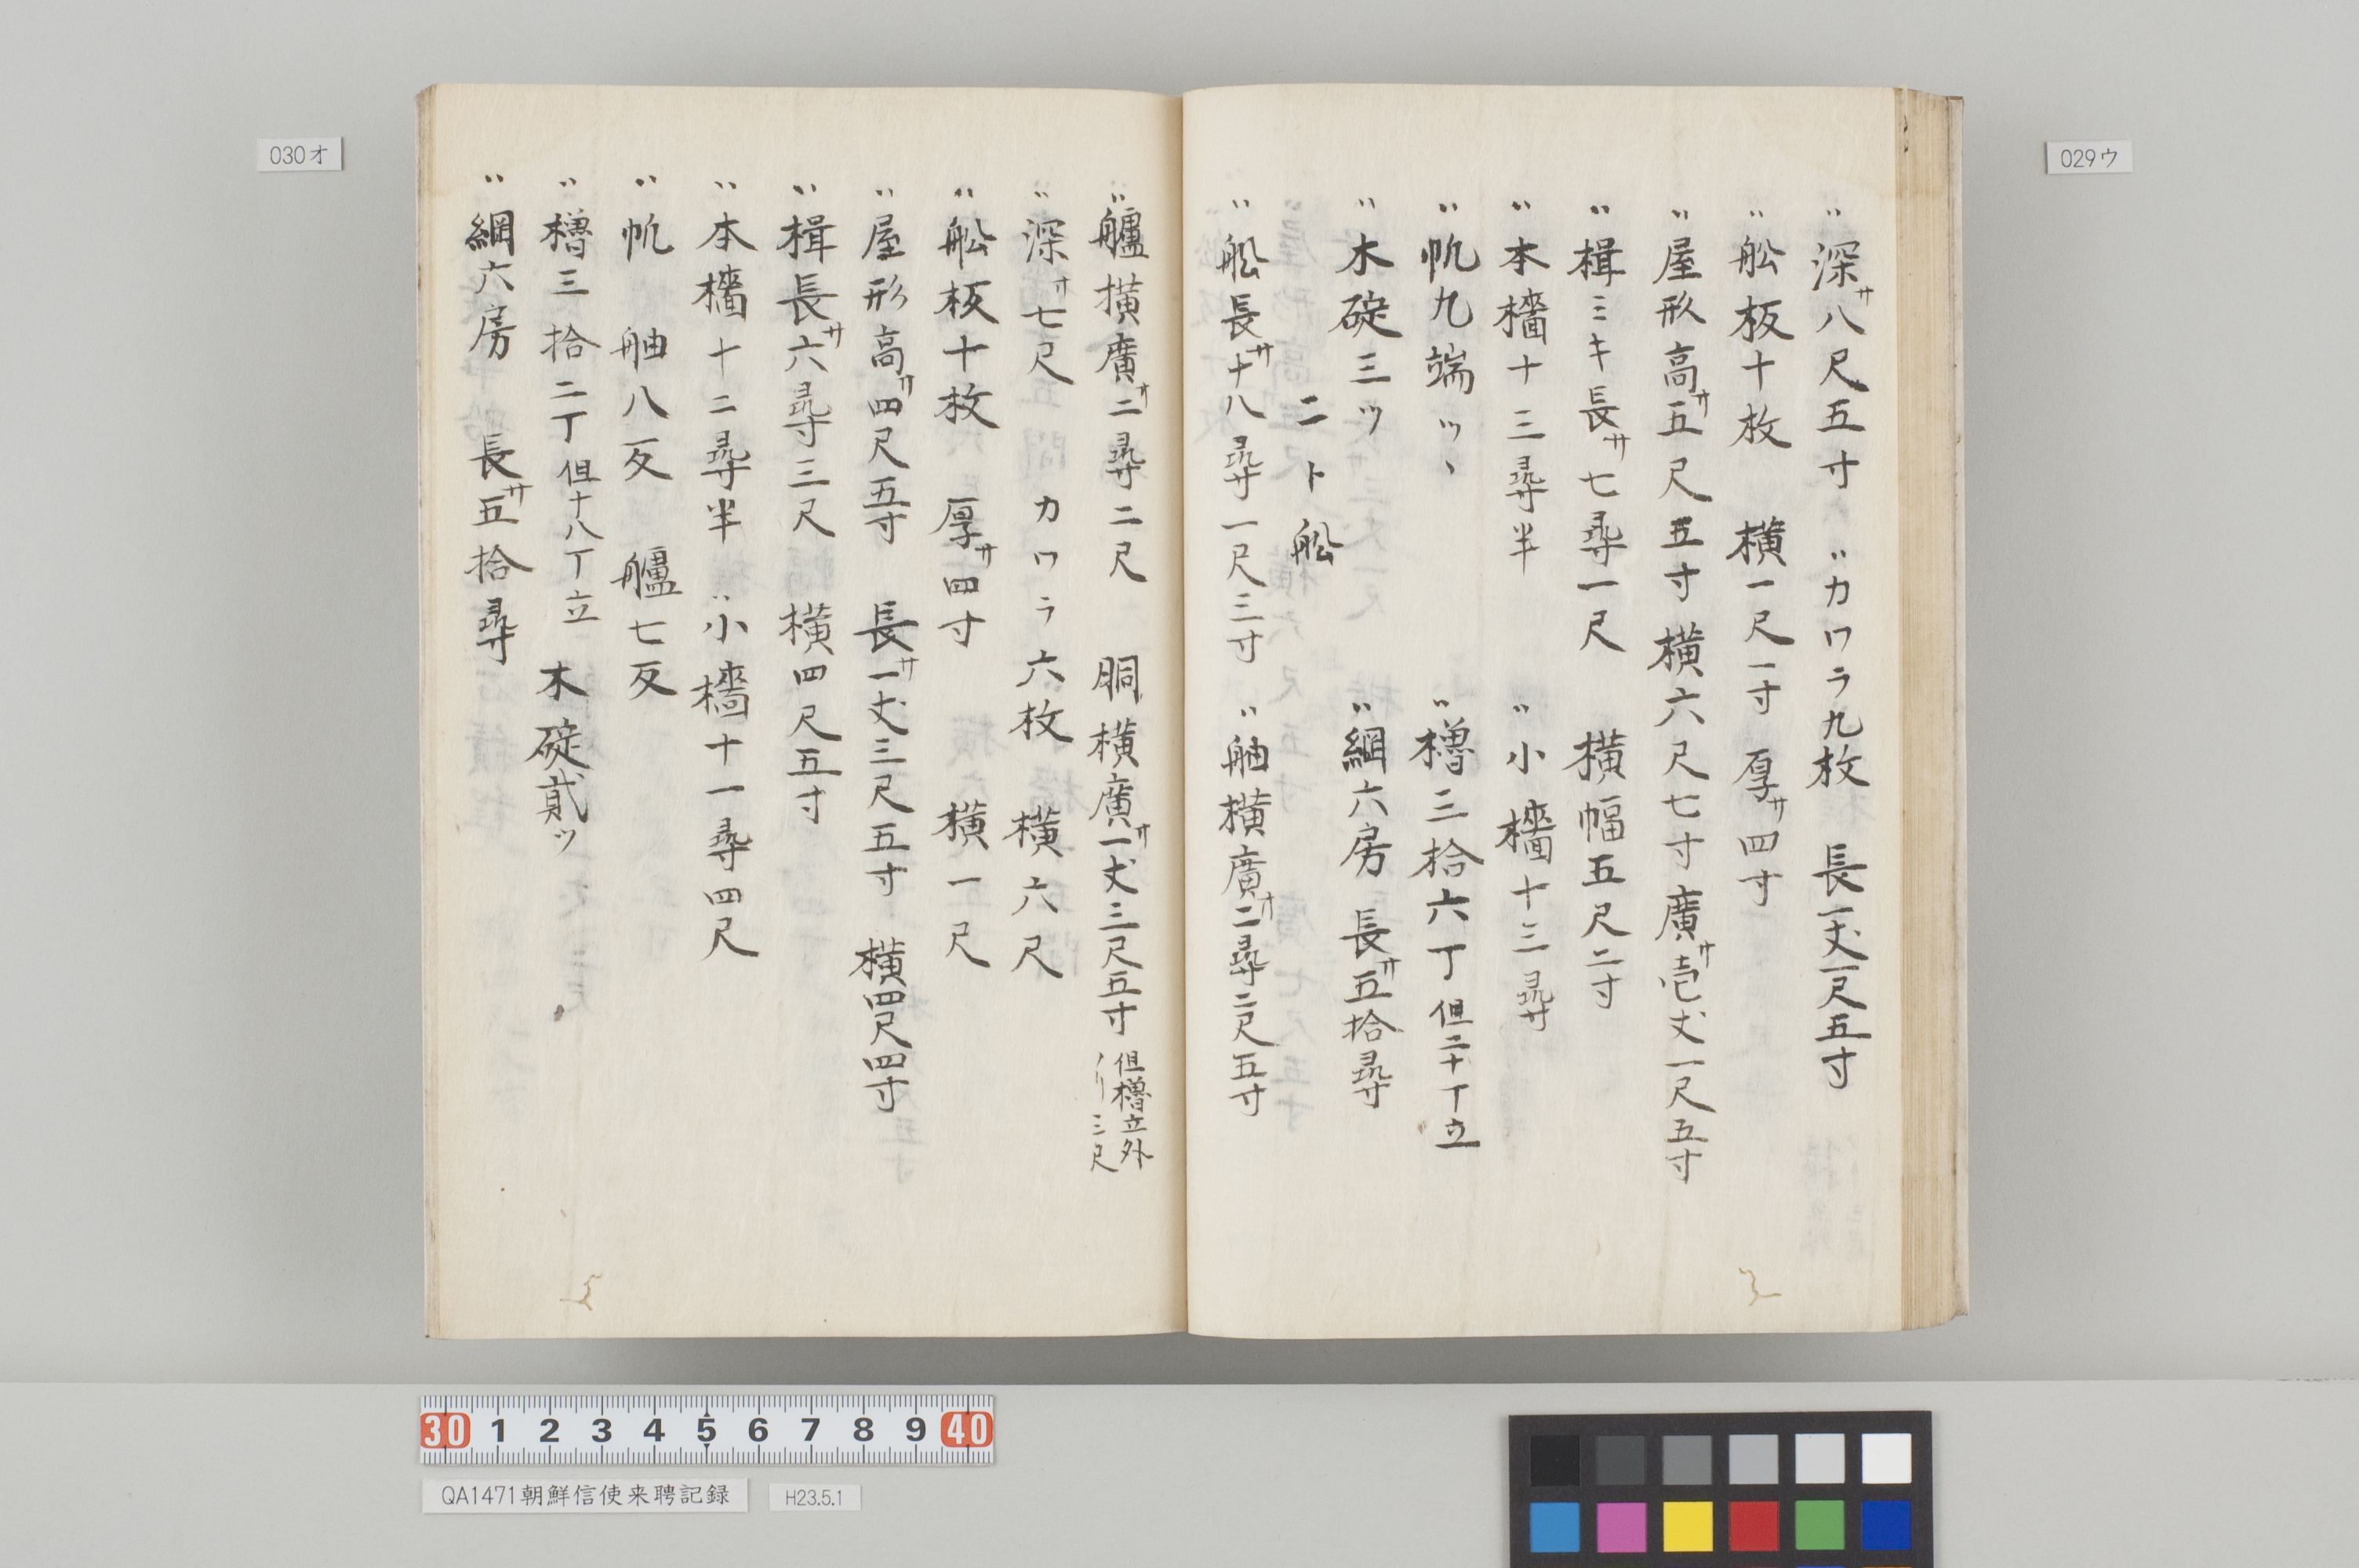 029ウ
〃深サ八尺五寸　〃カワラ九枚　長一丈一尺五寸
〃舩板十枚　横一尺一寸　厚サ四寸
〃屋形高サ五尺五寸　横六尺七寸　廣サ壱丈一尺五寸
〃楫ミキ長サ七尋一尺　横幅五尺二寸
〃本檣十三尋半　〃小檣十三尋
〃帆九端ツヽ　〃櫓三拾六丁但二十丁立
〃木碇三ツ　〃綱六房　長サ五拾尋
二ト舩
〃舩長サ十八尋一尺三寸　〃舳横廣サ二尋二尺五寸
030オ
〃艫横廣サ二尋二尺　胴横廣サ一丈三尺五寸 但櫓立外
ノリ三尺
〃深サ七尺　カワラ六枚　横六尺
〃舩板十枚　厚サ四寸　横一尺
〃屋形高サ四尺五寸　長サ一丈三尺五寸　横四尺四寸
〃楫長サ六尋三尺　横四尺五寸
〃本檣十二尋半　〃小檣十一尋四尺
〃帆　舳八反　艫七反
〃櫓三拾二丁但十八丁立　木碇貳ツ
〃綱六房　長サ五拾尋
30 1 2 3 4 5 6 7 8 9 40
QA1471朝鮮信使来聘記録
H23.5.1